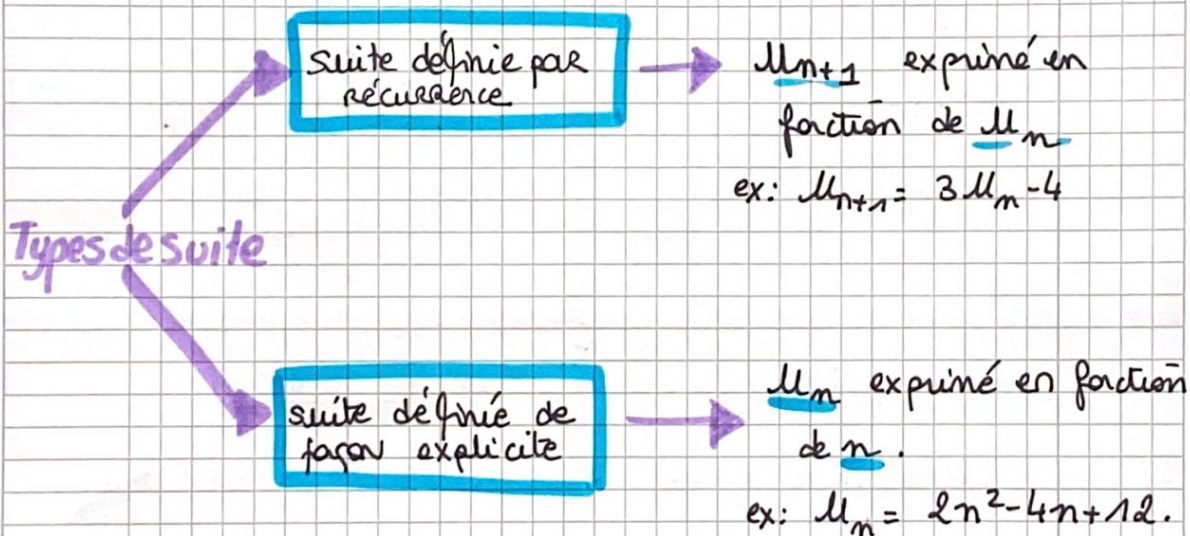 suite définie par
récurrence
Un+1 exprimé en
fonction de Un
ex: Un+1 = 3Un-4
Types de suite
suite définie de
façon explicite
Un exprimé en fonction
de n.
ex: Un = 2n²-4n+12.